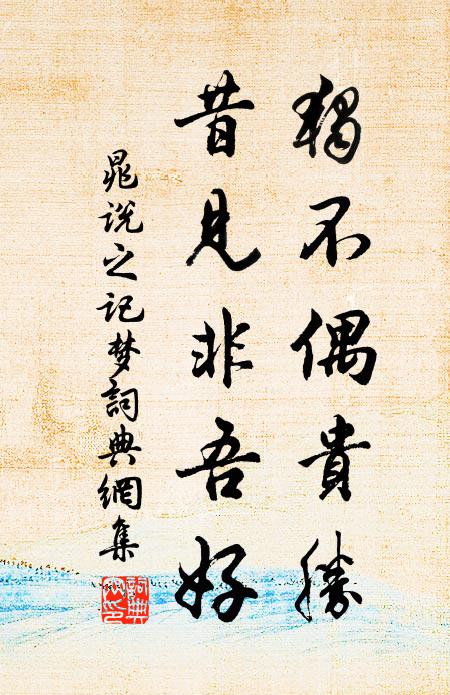 獨不偶貴勝
昔見非吾好
晁说之记梦詞典網集